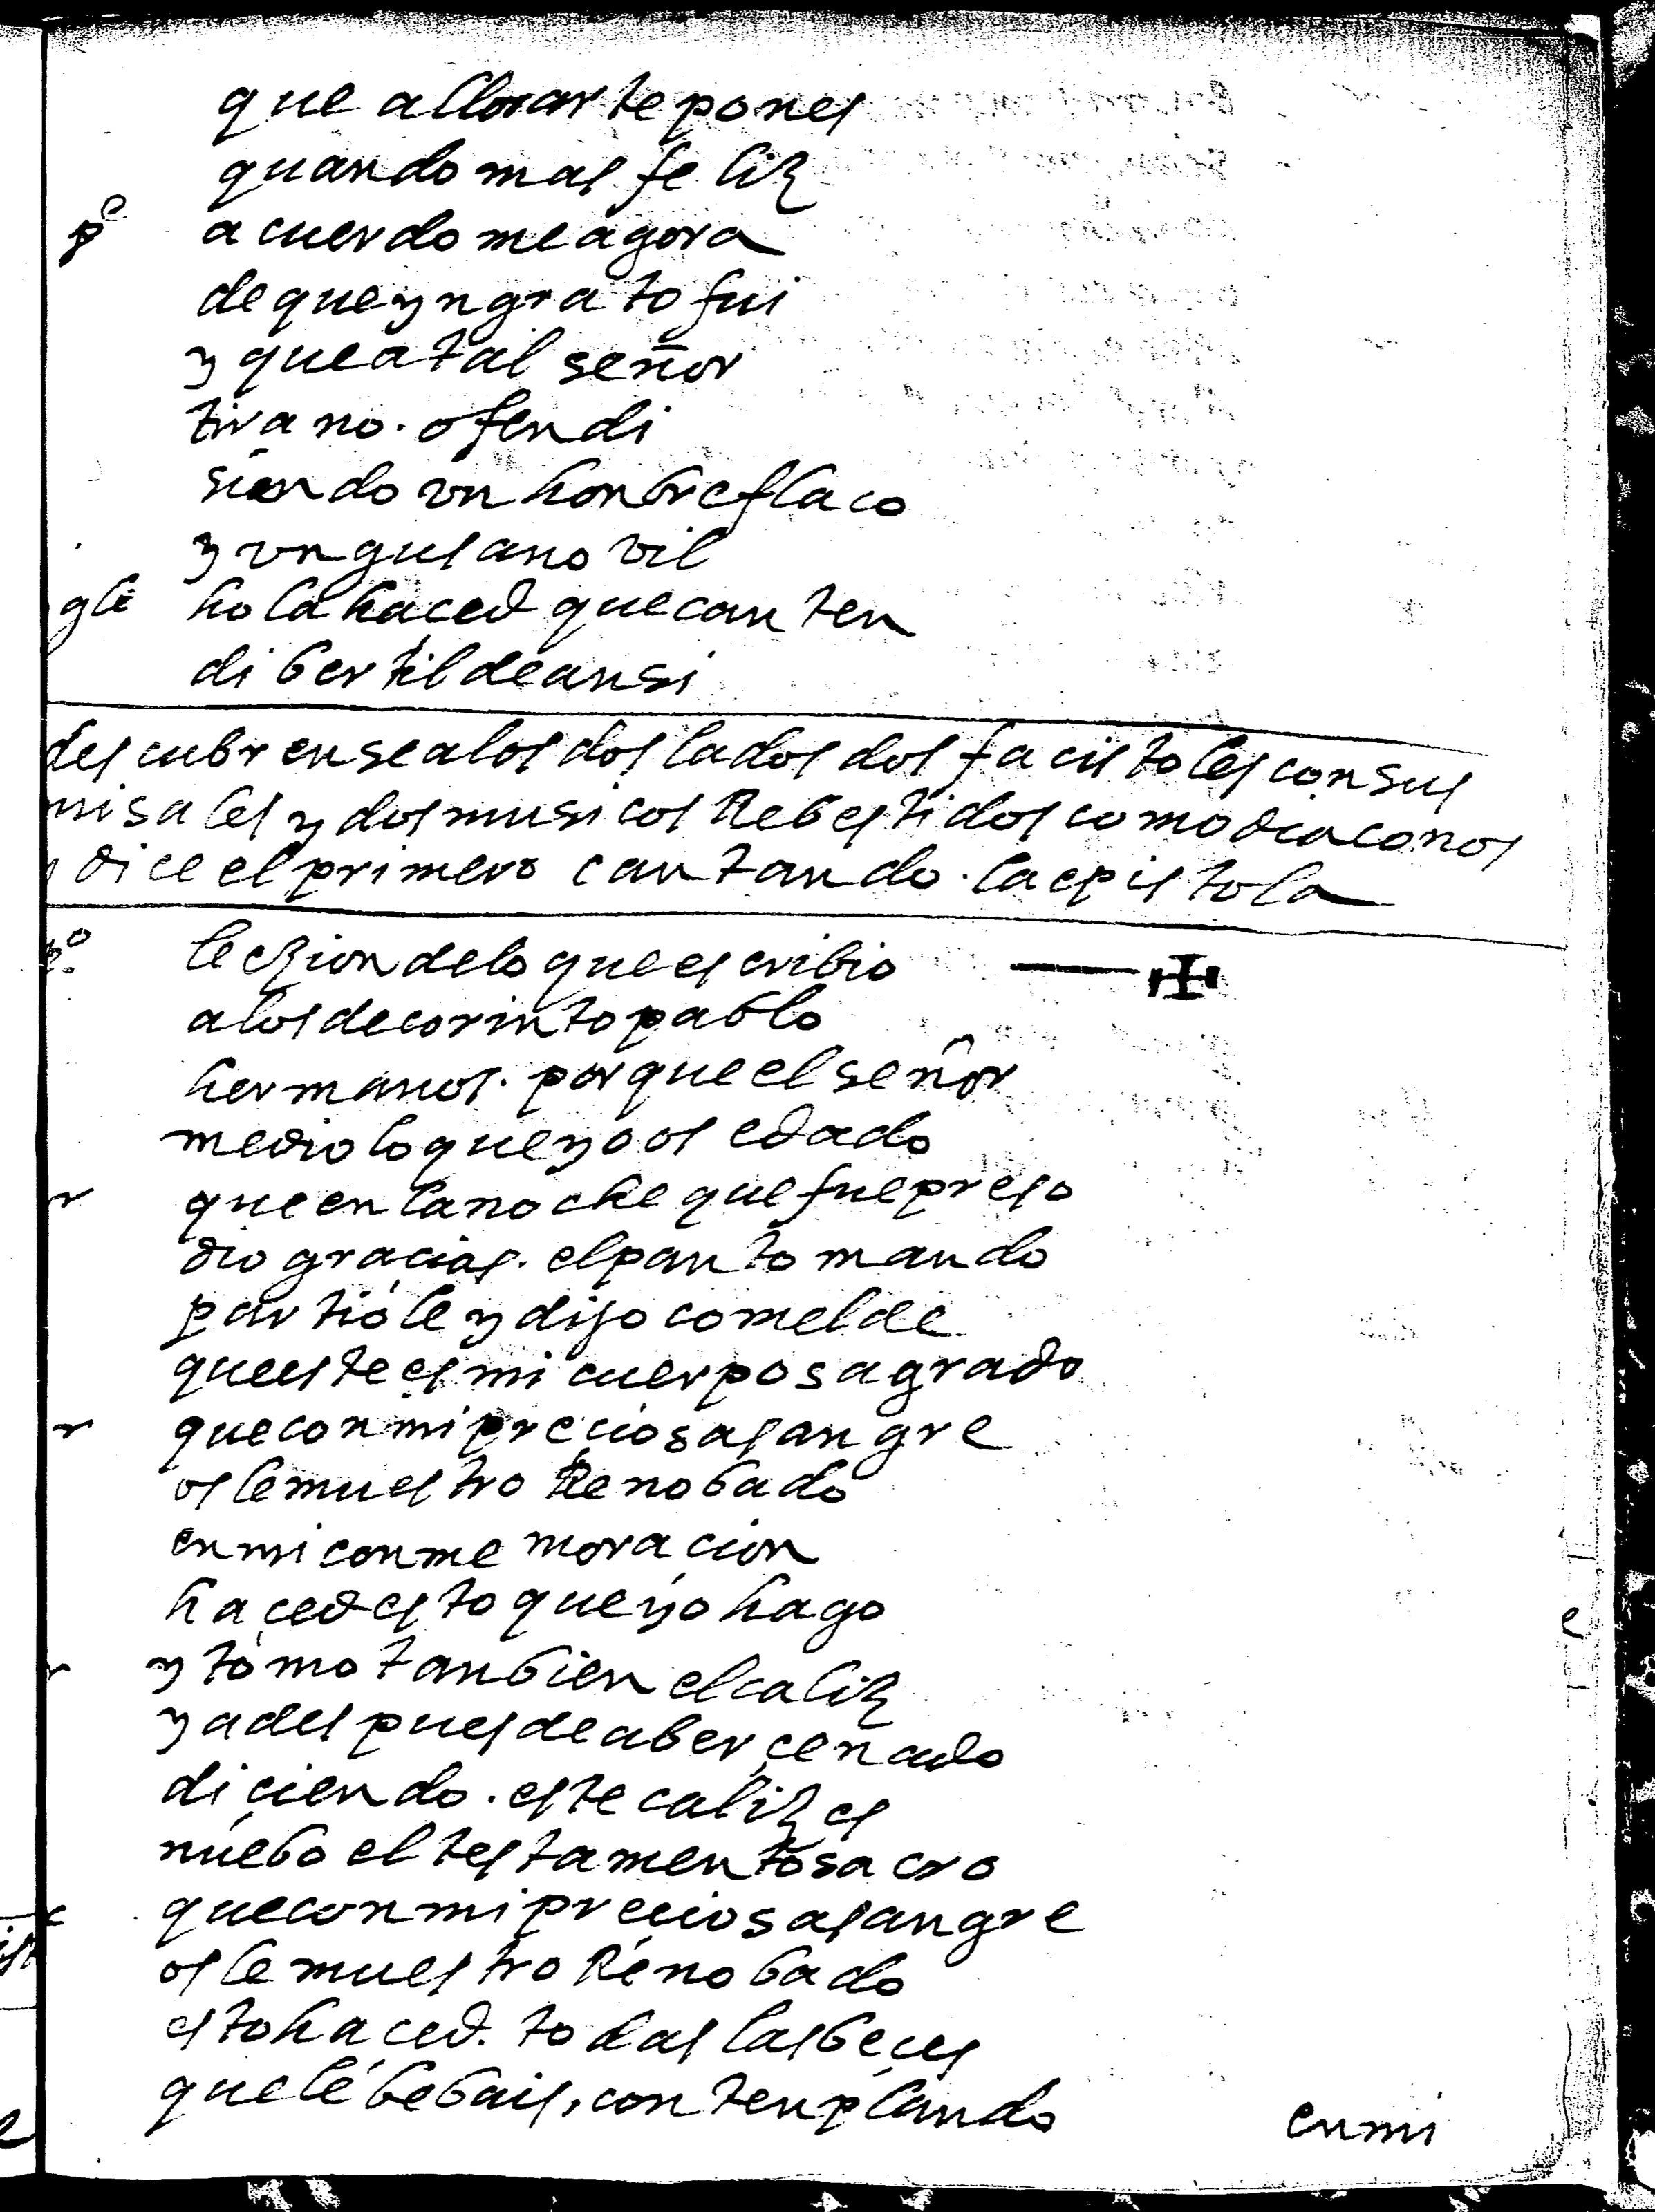 que allorar te pones
quando mas feliz
po acuerdo me agora
de que yngrato fui
y que a tal señor
tirano. ofendi
siendo vn honbre flaco
y vn gusano vil
gle hola haced que canten
dibertilde ansi
descubrense a los dos lados dos facistoles con sus
misales y dos musicos Rebestidos como diaconos
y dice el primero cantando. la epistola
lezion de lo que escribio
a los de corinto pablo
hermanos. porque el señor
me dio lo que yo os e dado
que en la noche que fue preso
dio gracias. el pan tomando
partiole y dijo comelde
que este es mi cuerpo sagrado
que con mi preciosa sangre
os le muestro Renobado
en mi conmemoracion
haced esto que yo hago
y tomo tanbien el caliz
ya despues de aber cenado
diciendo. este caliz es
nuebo el testamento sacro
que con mi preciosa sangre
os le muestro Renobado
esto haced. todas las beces
que le bebais, contenplando
en mi